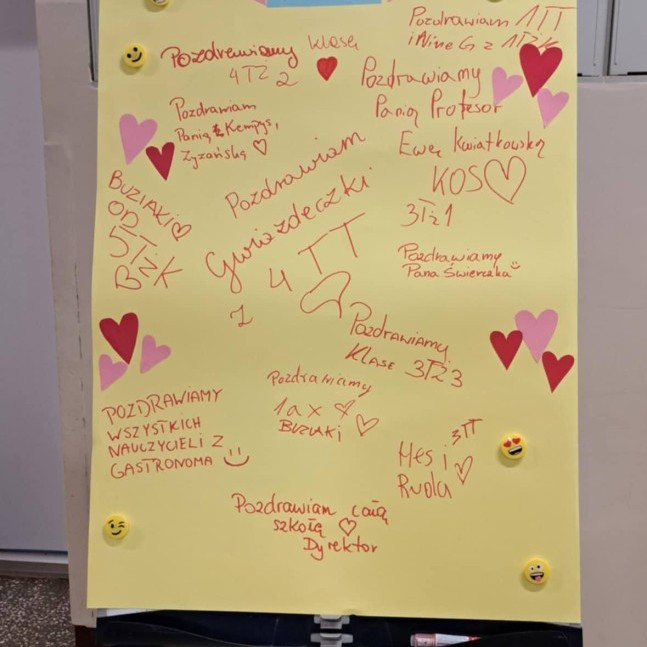 Pozdrawiamy klasę
4TŻ 2
Pozdrawiam 1TT
i Ninę G z 1TŻK
Pozdrawiamy
Panią Profesor
Ewę Kwiatkowską
KOS♡
3TŻ1
Pozdrawiam
Panią Kempys,
Zyzańską ♡
BUZIAKI♡
OD
5TŻK
BŻK
Pozdrawiam
Gwiazdeczki
z 4 TT
Pozdrawiamy
Pana Świerczka
Pozdrawiamy
Klasę 3TŻ3
Pozdrawiamy
1a x 4
BUZIAKI ♡
POZDRAWIAMY
WSZYSTKICH
NAUCZYCIELI Z
GASTRONOMA
3TT
Mes i
Ruda ♡
Pozdrawiam całą
szkołę ♡
Dyrektor